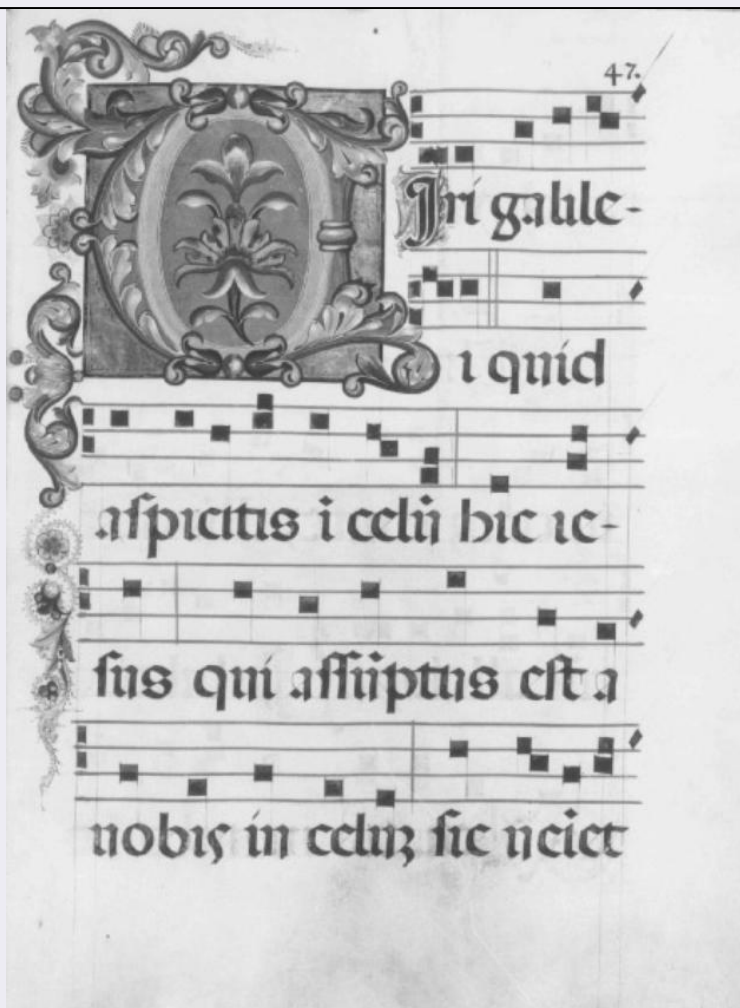 47.
Uiri galile-
i quid
aspicitis ĩ celũ hic ie-
sus qui assũptus est a
nobis in celuꝫ sic ueĩet